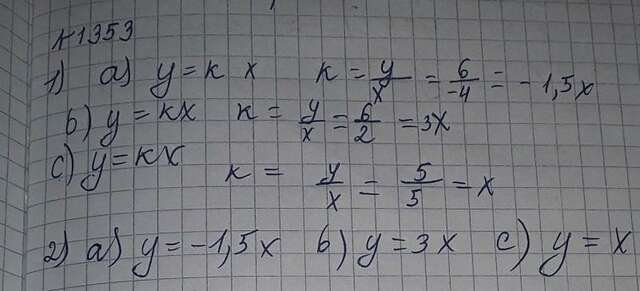 №1353
1) a) y = k x k = y/x = 6/-4 = -1,5x
b) y = kx k = y/x = 6/2 = 3x
c) y = kx
k = y/x = 5/5 = x
2) a) y = -1,5x b) y = 3x c) y = x